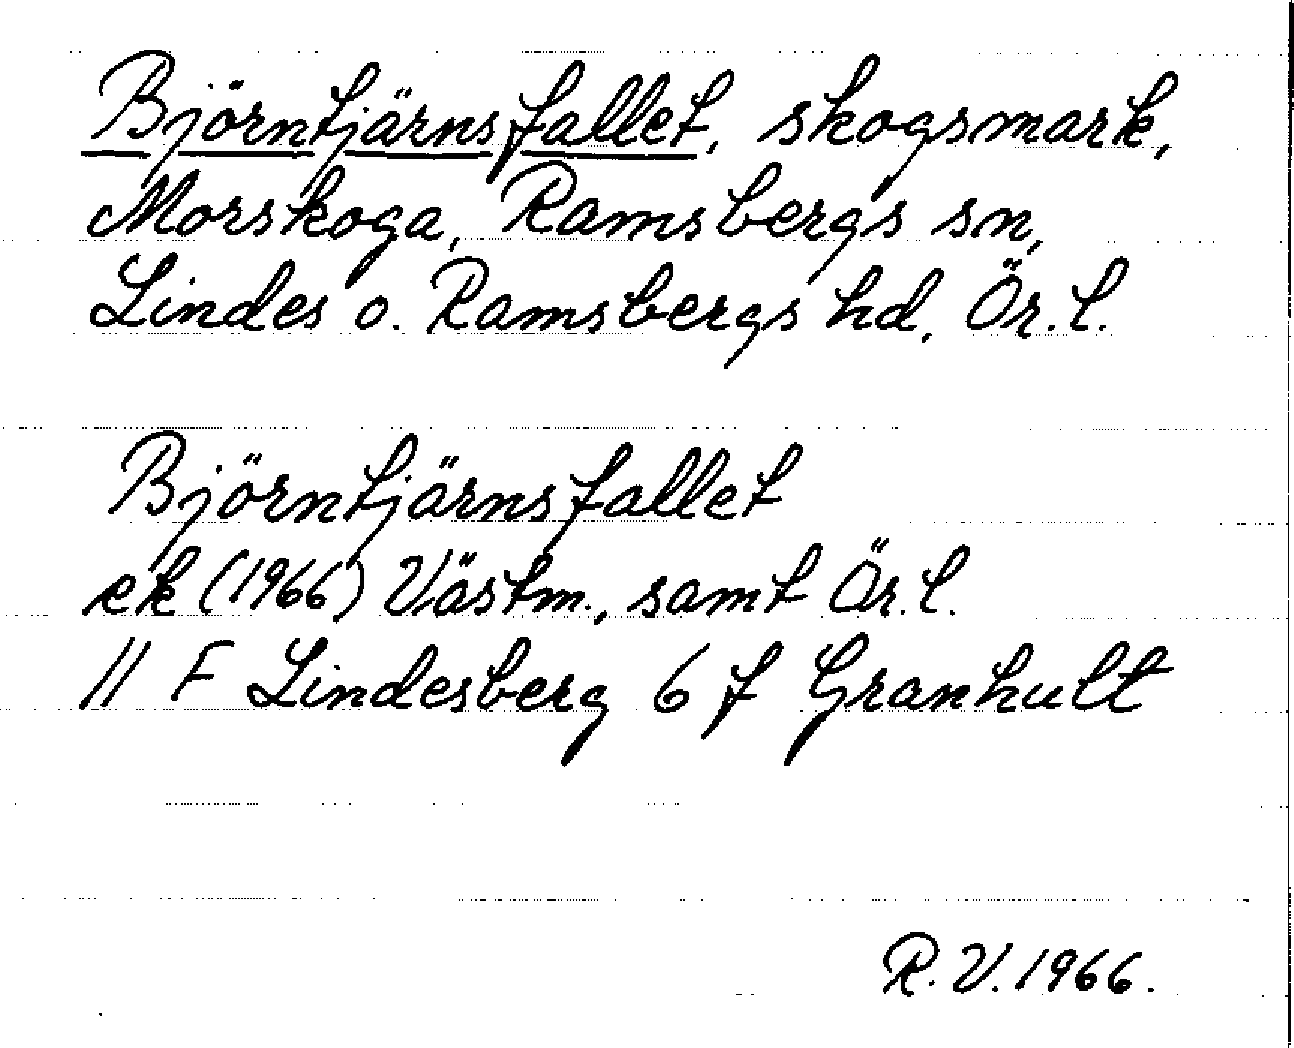 Björntjärnsfallet, skogsmark,
Morskoga, Ramsbergs sn,
Lindes o. Ramsbergs hd, Ör.l.
Björntjärnsfallet
ek (1966) Västm., samt Ör.l.
11 F Lindesberg 6 f Granhult
R.V. 1966.